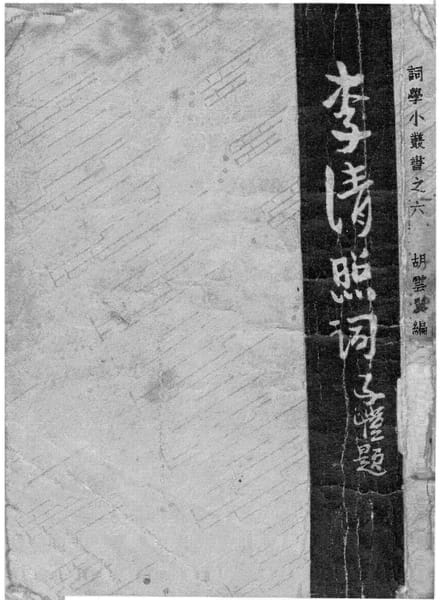 詞學小叢書之六 胡雲翼編
李清照词
子愷題